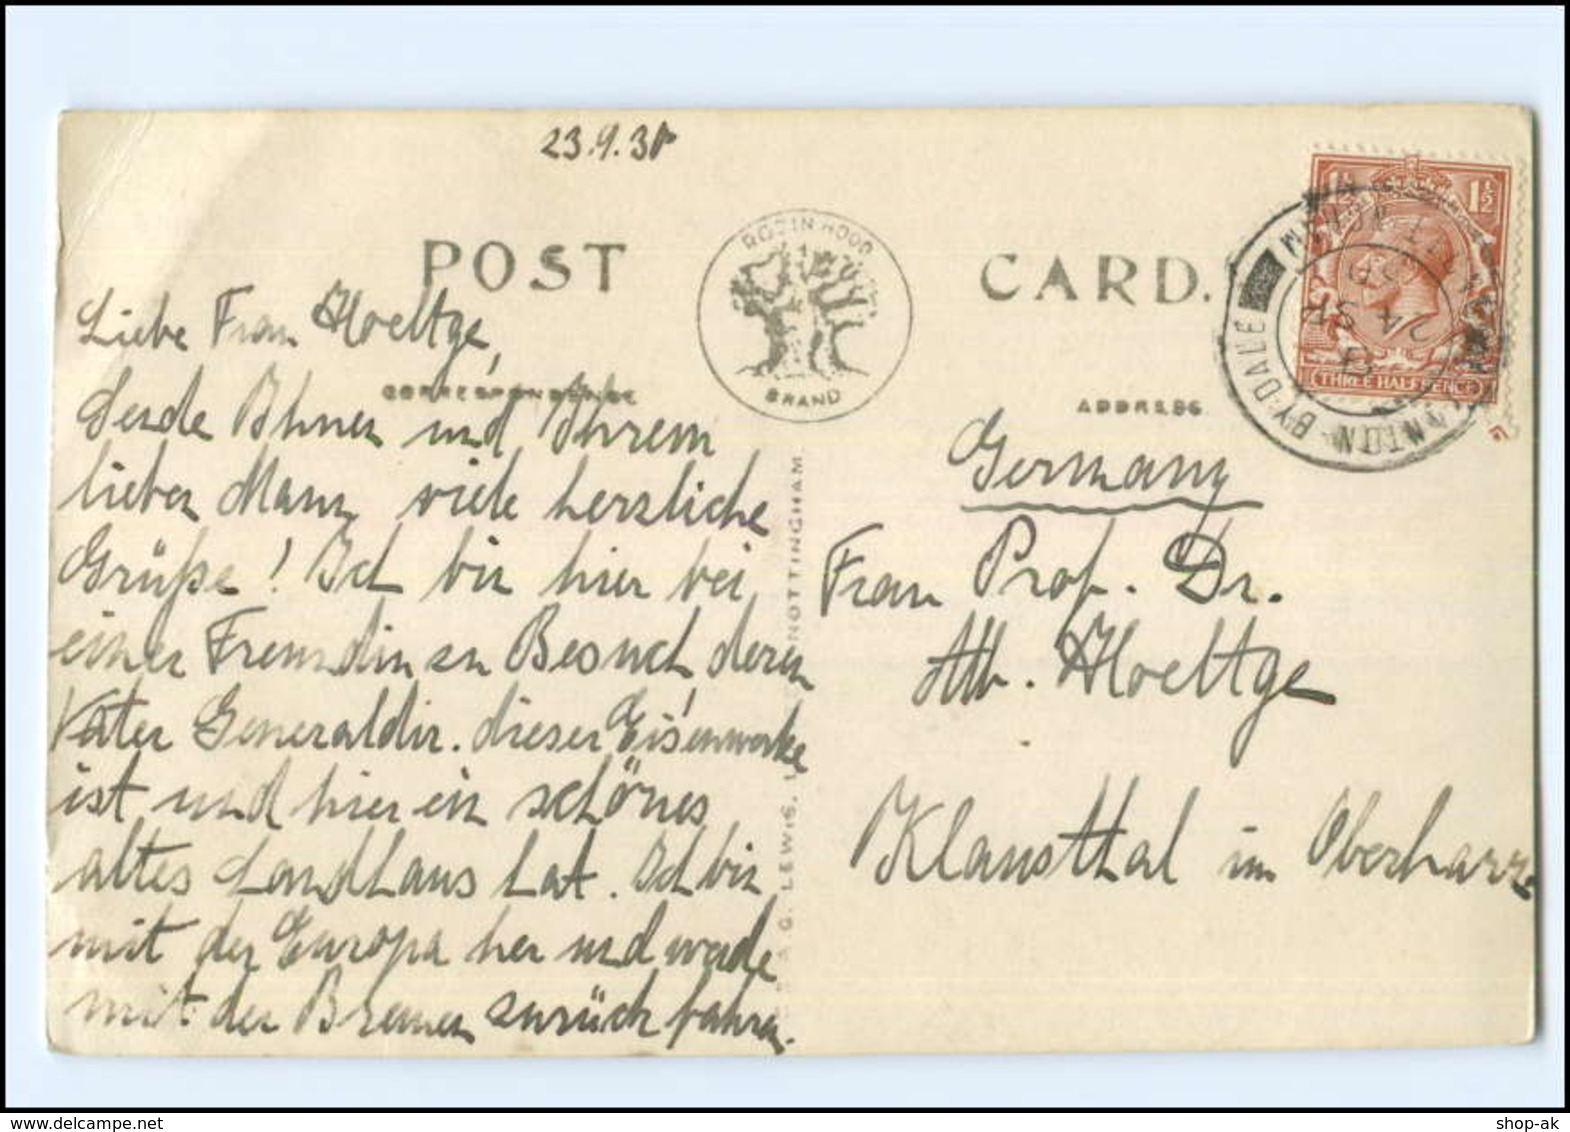 23.9.31
POST CARD.
ROBIN HOOD
BRAND
CORRESPONDENCE
ADDRESS
Liebe Frau Hoeltge,
Sende Ihnen und Ihrem
lieben Mann viele herzliche
Grüße! Ich bin hier bei
einer Freundin zu Besuch, deren
Vater Generaldir. dieser Eisenwerke
ist und hier ein schönes
altes Landhaus hat. Ich bin
mit der Europa her und werde
mit der Bremen zurück fahren.
A. G. LEWIS, NOTTINGHAM.
Germany
Frau Prof. Dr.
Alb. Hoeltge
Klausthal im Oberharz
THREE HALFPENCE
1½ 1½
STANTON-BY-DALE
24 SP
shop-ak